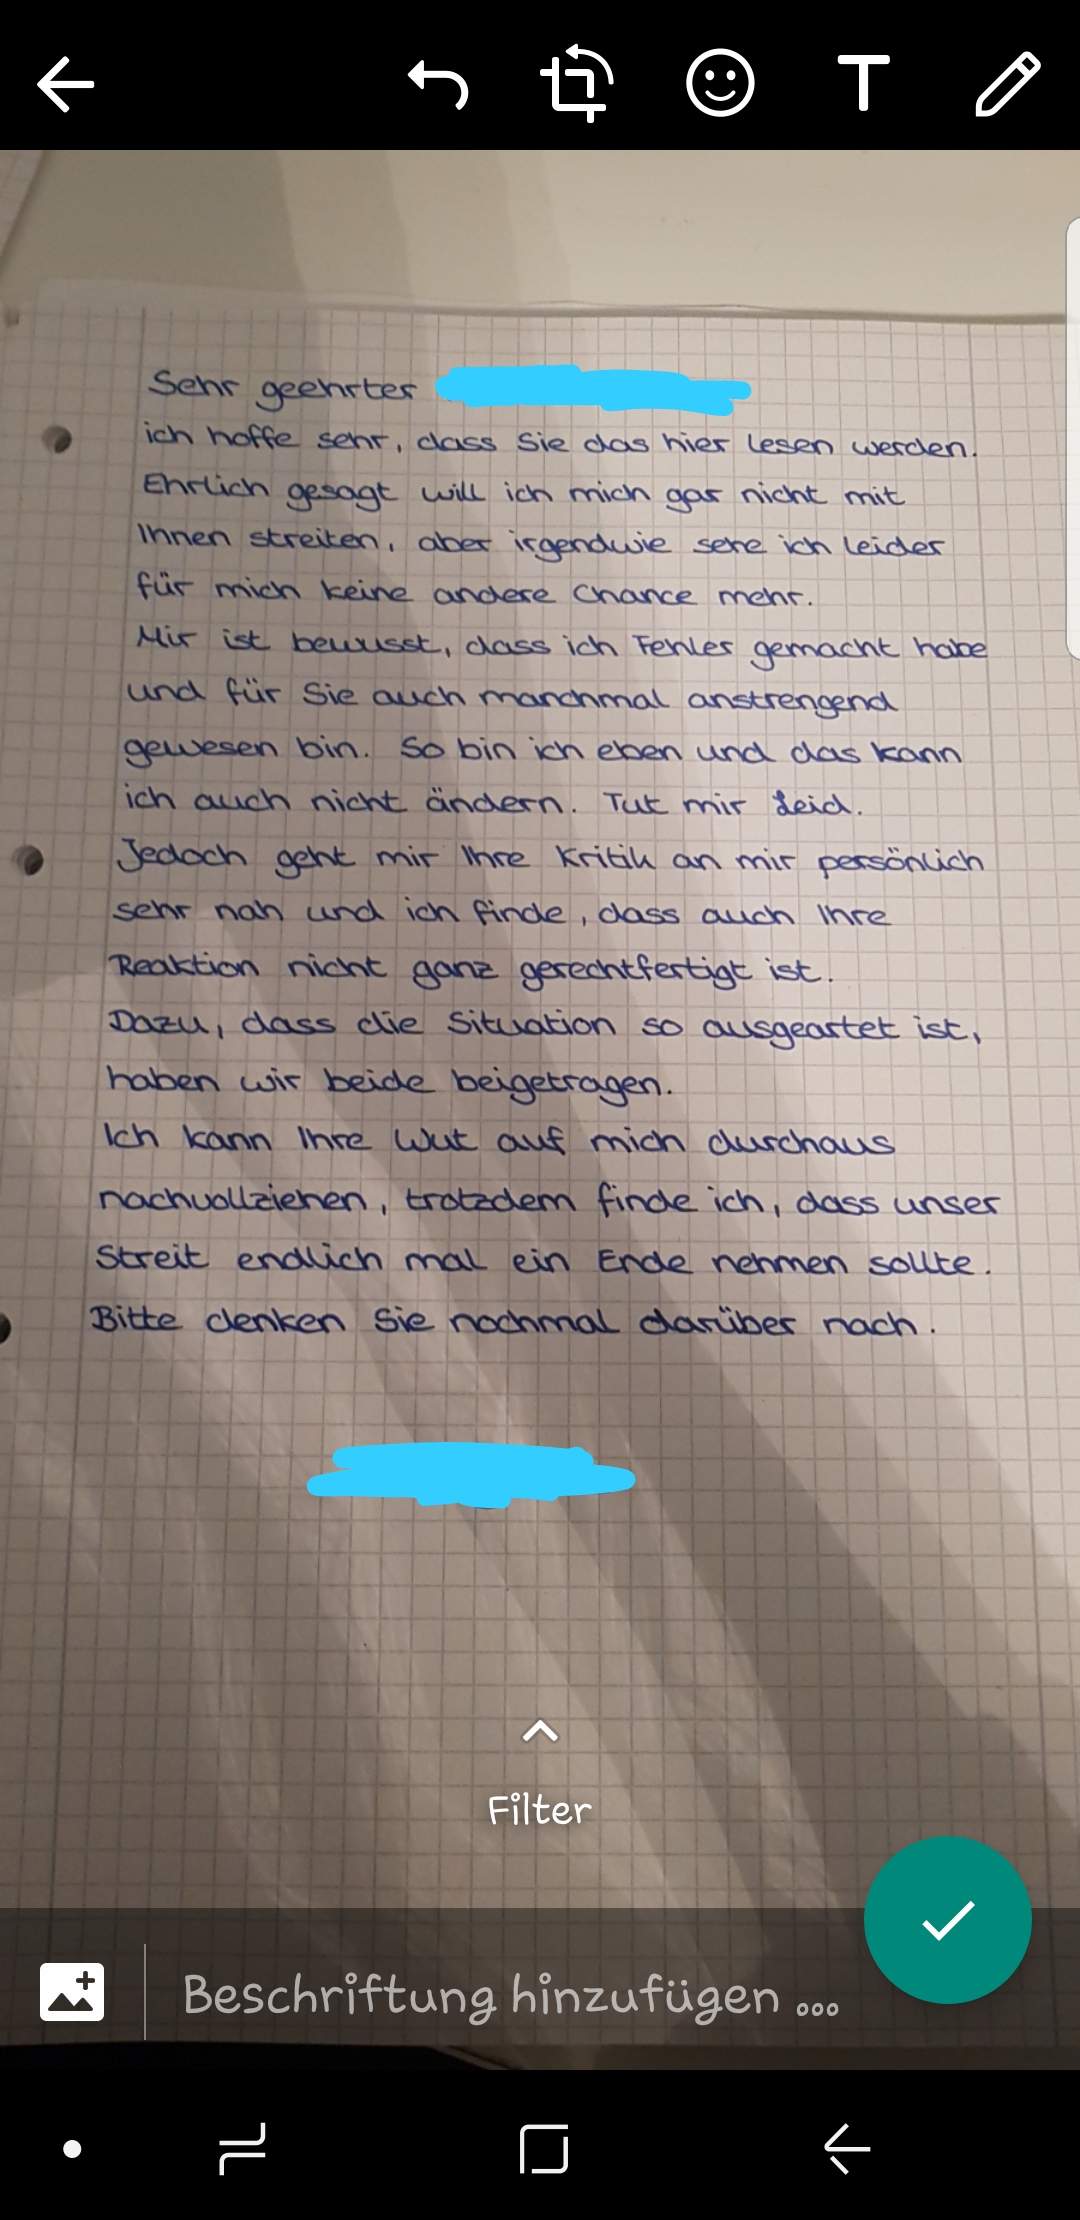 T
Sehr geehrter
ich hoffe sehr, dass Sie das hier lesen werden.
Ehrlich gesagt will ich mich gar nicht mit
Ihnen streiten, aber irgendwie sehe ich leider
für mich keine andere Chance mehr.
Mir ist bewusst, dass ich Fehler gemacht habe
und für Sie auch manchmal anstrengend
gewesen bin. So bin ich eben und das kann
ich auch nicht ändern. Tut mir Leid.
Jedoch geht mir Ihre Kritik an mir persönlich
sehr nah und ich finde, dass auch Ihre
Reaktion nicht ganz gerechtfertigt ist.
Dazu, dass die Situation so ausgeartet ist,
haben wir beide beigetragen.
Ich kann Ihre Wut auf mich durchaus
nachvollziehen, trotzdem finde ich, dass unser
Streit endlich mal ein Ende nehmen sollte.
Bitte denken Sie nochmal darüber nach.
Filter
Beschriftung hinzufügen ...